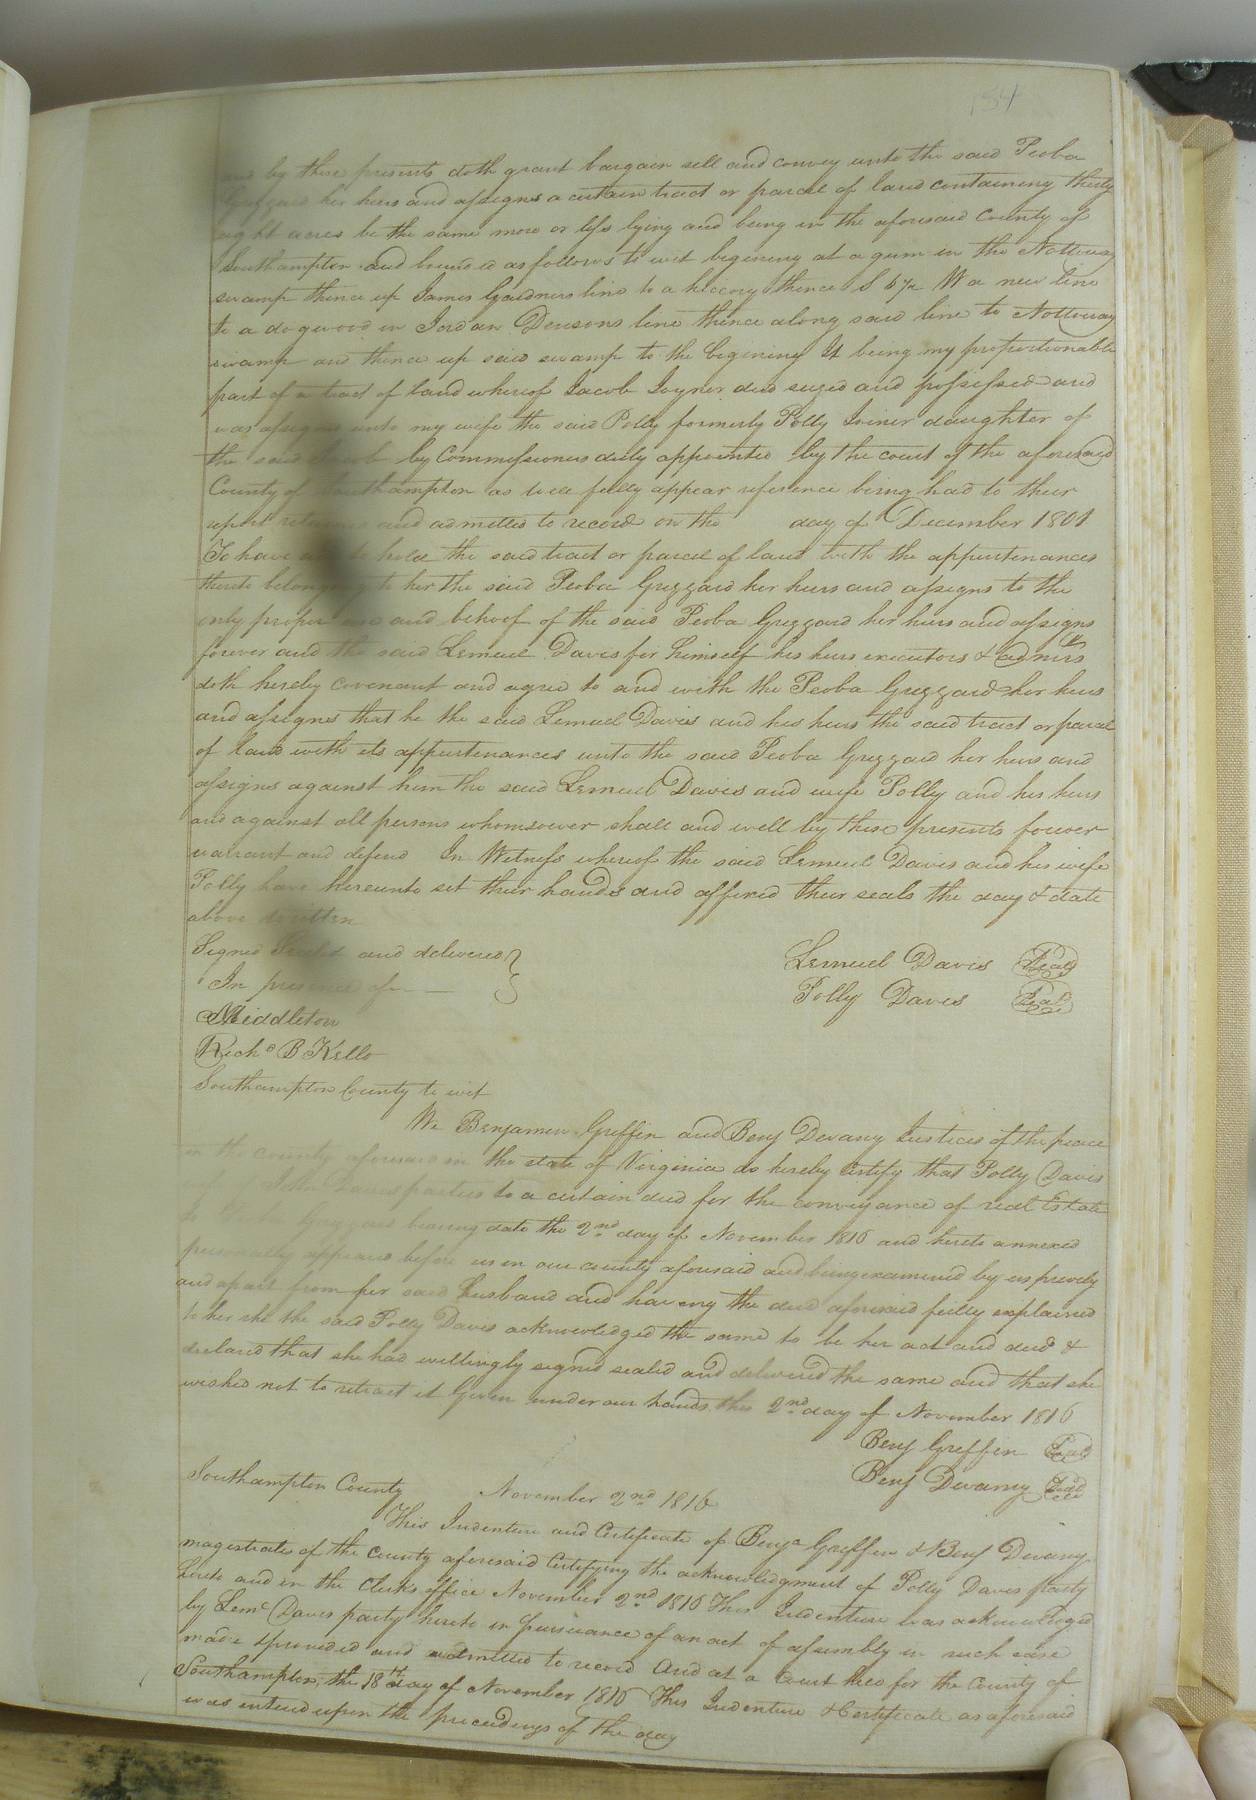 184
and by these presents doth grant bargain sell and convey unto the said Peoba
Grizzard her heirs and assigns a certain tract or parcel of land containing thirty
eight acres be the same more or less lying and being in the aforesaid County of
Southampton and bound as follows to wit begining at a gum in the Nottoway
swamp thence up James Gardners line to a hiccory thence S 67½ W a new line
to a dogwood in Jordan Denisons line thence along said line to Nottoway
swamp and thence up said swamp to the begining It being my proportionable
part of a tract of land whereof Jacob Joyner died seized and possessed and
was assigned unto my wife the said Polly formerly Polly Joiner daughter of
the said Jacob by Commissioners duly appointed by the court of the aforesaid
County of Southampton as will fully appear reference being had to their
report returned and admitted to record on the day of December 1801
To have and to hold the said tract or parcel of land with the appurtenances
thereto belonging to her the said Peoba Grizzard her heirs and assigns to the
only proper use and behoof of the said Peoba Grizzard her heirs and assigns
forever and the said Lemuel Davis for himself his heirs executors & admrs
doth hereby covenant and agree to and with the Peoba Grizzard her heirs
and assigns that he the said Lemuel Davis and his heirs the said tract or parcel
of land with its appurtenances unto the said Peoba Grizzard her heirs and
assigns against him the said Lemuel Davis and wife Polly and his heirs
and against all persons whomsoever shall and will by these presents forever
warrant and defend In Witness whereof the said Lemuel Davis and his wife
Polly have hereunto set their hands and affixed their seals the day & date
above written
Signed Sealed and delivered } Lemuel Davis Seal
In presence of Polly Davis Seal
Middleton
Richd B Kello
Southampton County to wit
We Benjamin Griffin and Benj Devany Justices of the peace
in the county aforesaid in the state of Virginia do hereby certify that Polly Davis
parties to a certain deed for the conveyance of real Estate
to Grizzard bearing date the 2nd day of November 1816 and hereto annexed
personally appeared before us in our county aforesaid and being examined by us privily
and apart from her said husband and having the deed aforesaid fully explained
to her she the said Polly Davis acknowledged the same to be her act and deed &
declared that she had willingly signed sealed and delivered the same and that she
wished not to retract it Given under our hands this 2nd day of November 1816
Benj Griffin Seal
Benj Devany Seal
Southampton County November 2nd 1816
This Indenture and Certificate of Benja Griffin & Benj Devany
magistrates of the County aforesaid Certifying the acknowledgment of Polly Davis party
hereto and in the Clerks office November 2nd 1816 This Indenture was acknowledged
by Leml Davis party hereto in pursuance of an act of assembly in such case
made & provided and admitted to record And at a Court held for the County of
Southampton the 18th day of November 1816 This Indenture & Certificate as aforesaid
was entered upon the proceedings of the day